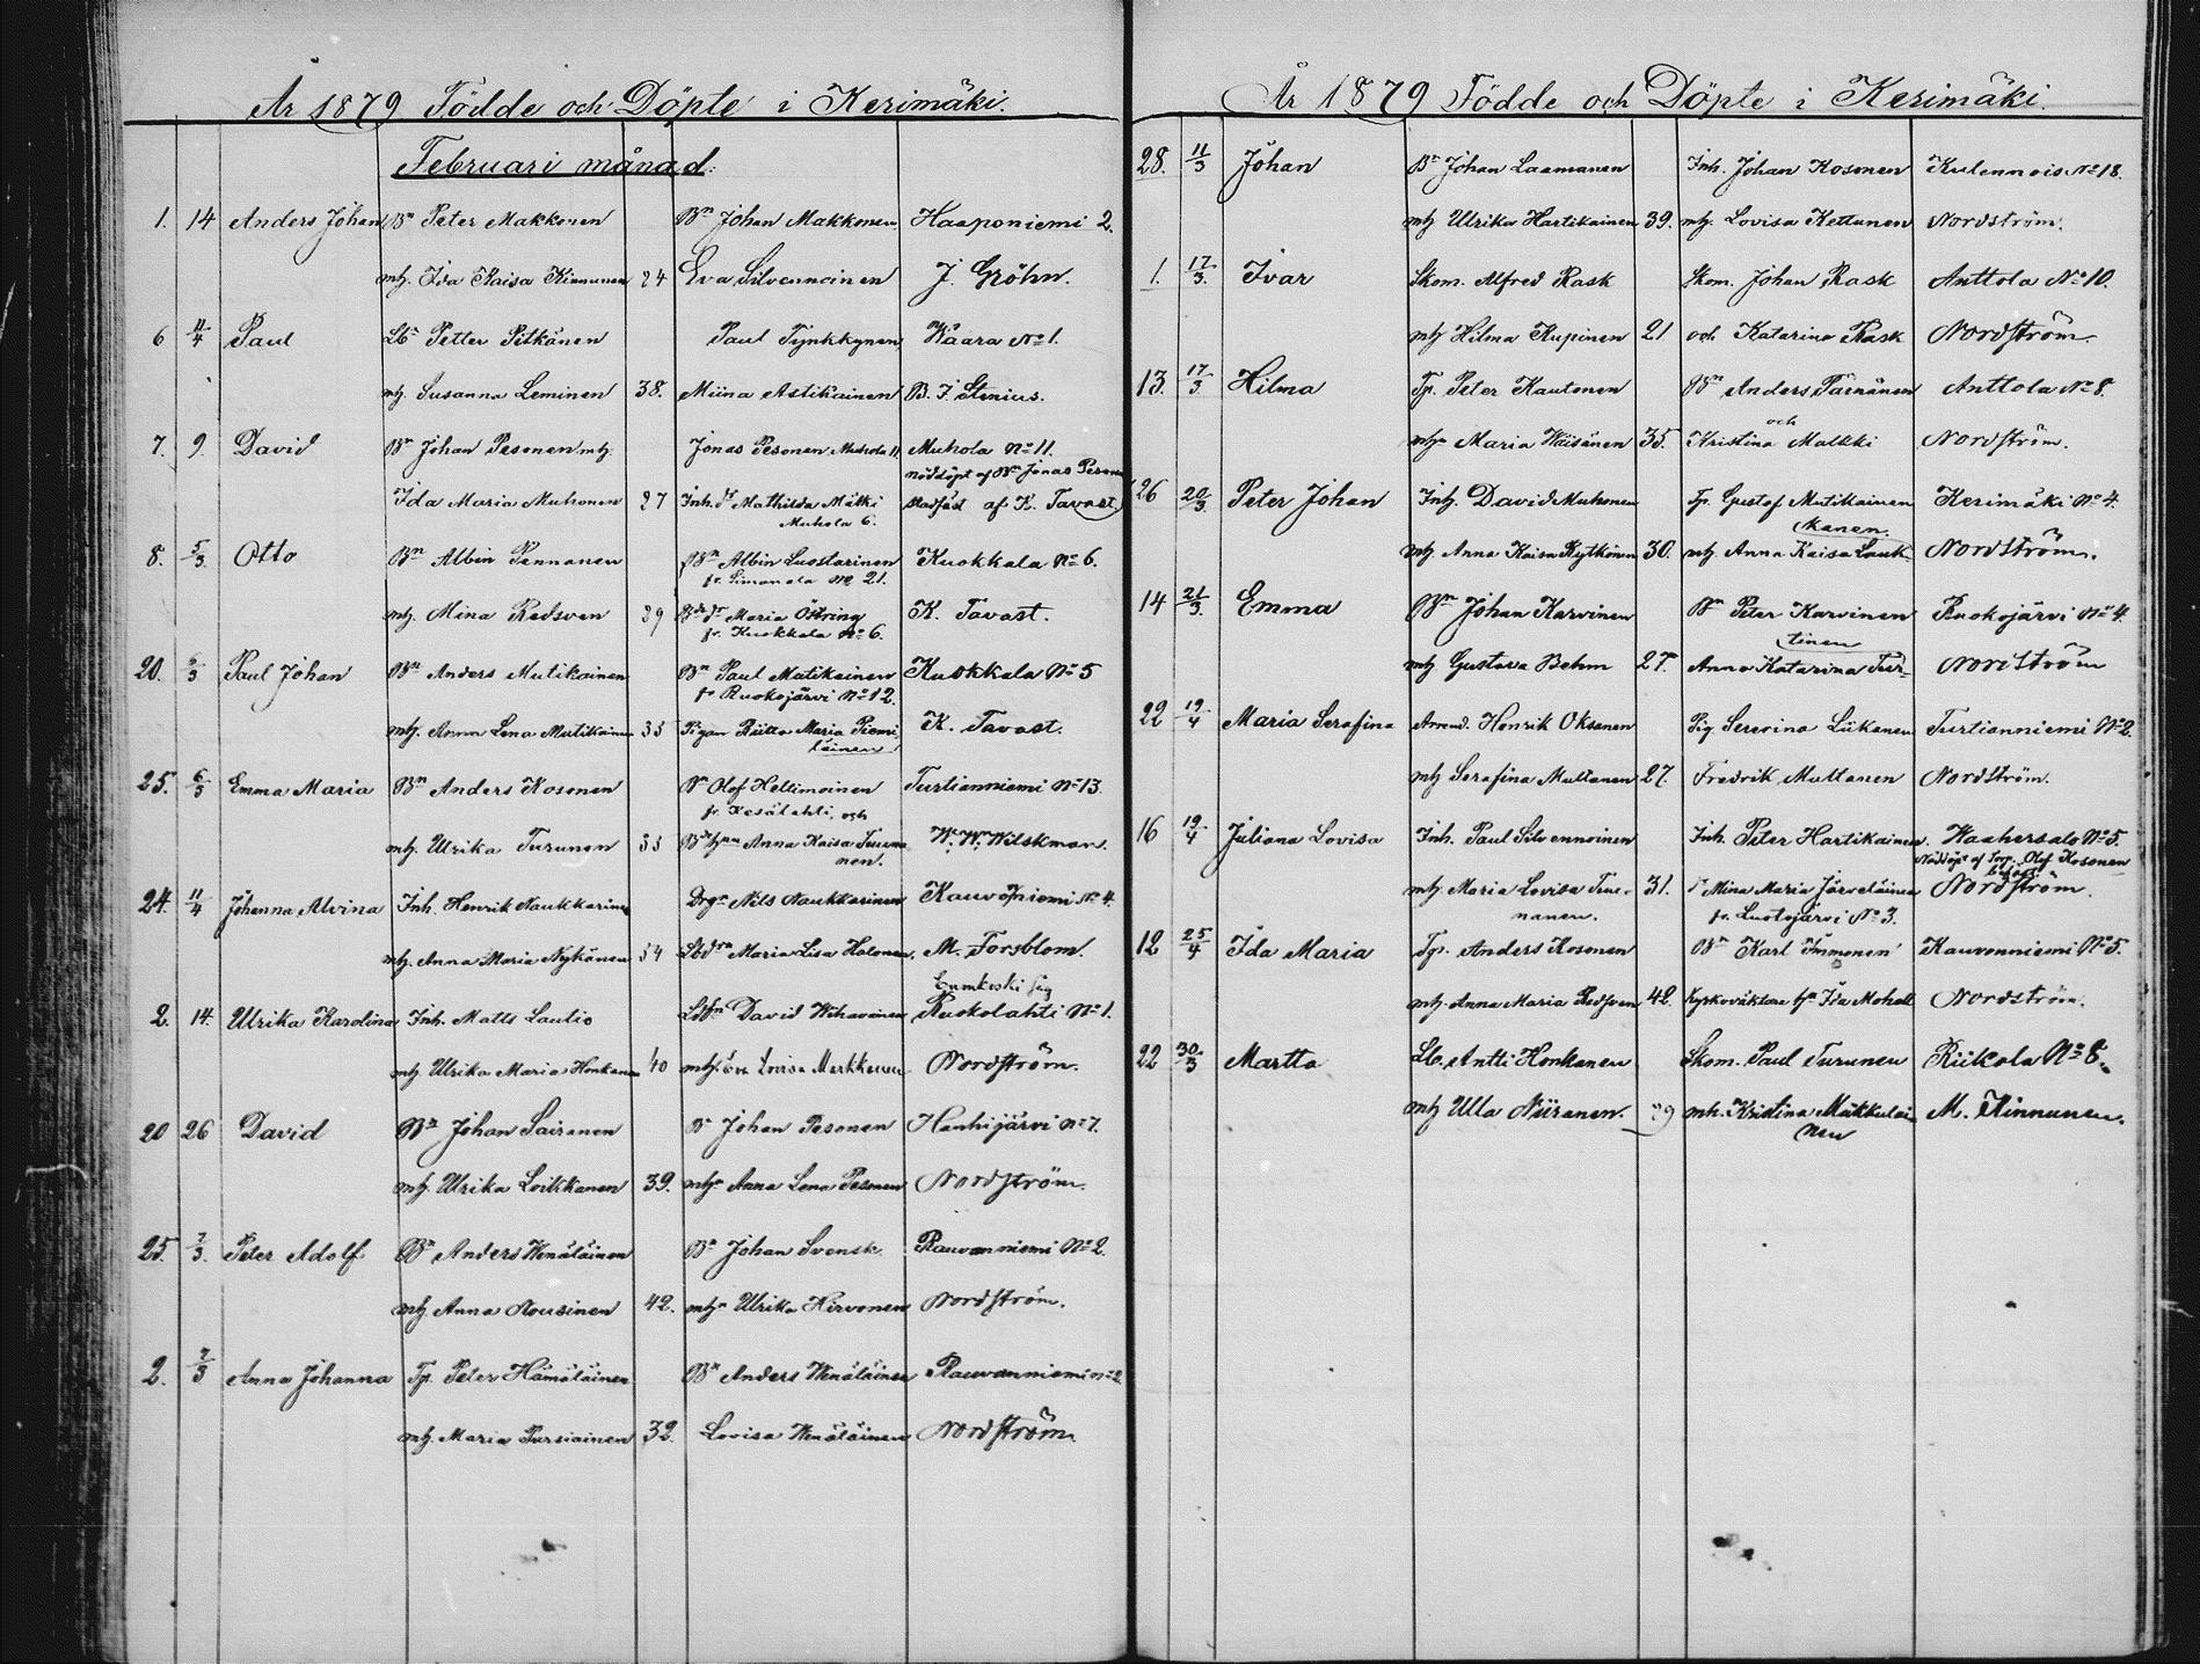 År 1879 Födde och Döpte i Kerimäki.
Februari månad.
1. 14 Anders Johan Bn Peter Makkonen Bn Johan Makkonen Haaponiemi 2.
mh. Ida Kaisa Kinnunen 24 Eva Silvennoinen J. Gröhn.
6 11/4 Paul Lbn Petter Pitkänen Paul Tynkkynen Waara No 1.
mh. Susanna Leminen 38. Miina Astikainen B. J. Stenius.
7. 9. David Bn Johan Pesonen mh. Jonas Pesonen Muhola 11 Muhola No 11.
nöddöpt af Bn Jonas Pesonen
Ida Maria Muhonen 27 Inh. dr Mathilda Mälki stadfäst af K. Tavast.
Muhola 6.
8. 5/3 Otto Bn Albin Pennanen Bn Albin Luostarinen Kuokkala No 6.
fr. Simanala No 21.
mh. Mina Redsven 29 Bde dr Maria Östring K. Tavast.
fr. Kuokkala No 6.
20. 6/3 Paul Johan Bn Anders Mutikainen Bn Paul Mutikainen Kuokkala No 5
fr Ruokojärvi No 12.
mh. Anna Lena Mutikainen 33 Pigan Riitta Maria Piemi- K. Tavast.
läinen
25. 6/3 Emma Maria Bn Anders Kosonen Bn Olof Heltimoinen Turtianniemi No 13.
fr. Kesälahti, och
mh. Ulrika Turunen 33 Anna Kaisa W. W. Wilskman.
nen.
24. 11/4 Johanna Alvina Inh. Henrik Naukkarinen Drgn Nils Naukkarinen Kauvoniemi No 4.
mh. Anna Maria Nykänen 34 Lbdrn Maria Lisa Halonen. M. Forsblom.
Enmkoski
2. 14. Ulrika Karolina Inh. Matts Lautio David Wihavainen Ruokolahti No 1.
mh Ulrika Maria Honkanen 40 mh. Eva Lovisa Markkanen Nordström.
20 26 David Bn Johan Sairanen Bn Johan Pesonen Hanhijärvi No 7.
mh. Ulrika Loikkanen 39. mhn Anna Lena Pesonen Nordström.
25. 7/3. Peter Adolf Bn Anders Wenäläinen Bn Johan Svensk Rauvanniemi No 2.
mh Anna Nousinen 42. mhn Ulrika Hirvonen Nordström.
2. 7/3 Anna Johanna Tp. Peter Hämäläinen Bn Anders Wenäläinen Rauvanniemi No 2
mh. Maria Pursiainen 32. Lovisa Wenäläinen Nordström.
År 1879 Födde och Döpte i Kerimäki.
28. 11/3 Johan Bn Johan Laamanen Inh. Johan Kosonen Kulennois No 18.
mh Ulrika Hartikainen 39. mh. Lovisa Kettunen Nordström.
1. 17/3. Ivar Skom. Alfred Rask Skom. Johan Rask Anttola No 10.
mh Hilma Kupinen 21 och Katarina Rask Nordström.
13. 17/3 Hilma Tp. Peter Kautonen Bn Anders Pärnänen Anttola No 8.
och
mhn Maria Wäisänen 35. Kristina Malkki Nordström.
26 20/3. Peter Johan Inh. David Muhonen Tp. Gustaf Mutikainen Kerimäki No 4.
kanen.
mh Anna Kaisa Kytkönen 30. mh. Anna Kaisa Lauk- Nordström.
14 21/3. Emma Bn Johan Karvinen Bn Peter Karvinen Ruokojärvi No 4.
tinen
mh Gustava Behm 27. Anna Katarina Tur- Nordström
22 19/4 Maria Serafina Arrend. Henrik Oksanen Pig. Serevina Liikanen Turtianniemi No 2.
mh Serafina Multanen 27. Fredrik Multanen Nordström.
16 19/4 Juliana Lovisa Inh. Paul Silvennoinen Inh. Peter Hartikainen. Haahersalo No 5.
Nöddöpt af Olof Kosonen
mh. Maria Lovisa Tene- 31. dr Mina Maria Järveläinen Nordström.
nanen. fr. Luotojärvi No 3.
12 25/4 Ida Maria Tp. Anders Kosonen Bn Karl Immonen Kauvonniemi No 5.
mh. Anna Maria Redsven 42. Kyrkoväktare hn Ida Mohell Nordström.
22 30/3 Martta Lb. Antti Honkanen Skom. Paul Turunen Riikola No 8.
mh Ulla Niiranen. 29 mh. Kristina Mäkkuläi- M. Kinnunen.
nen